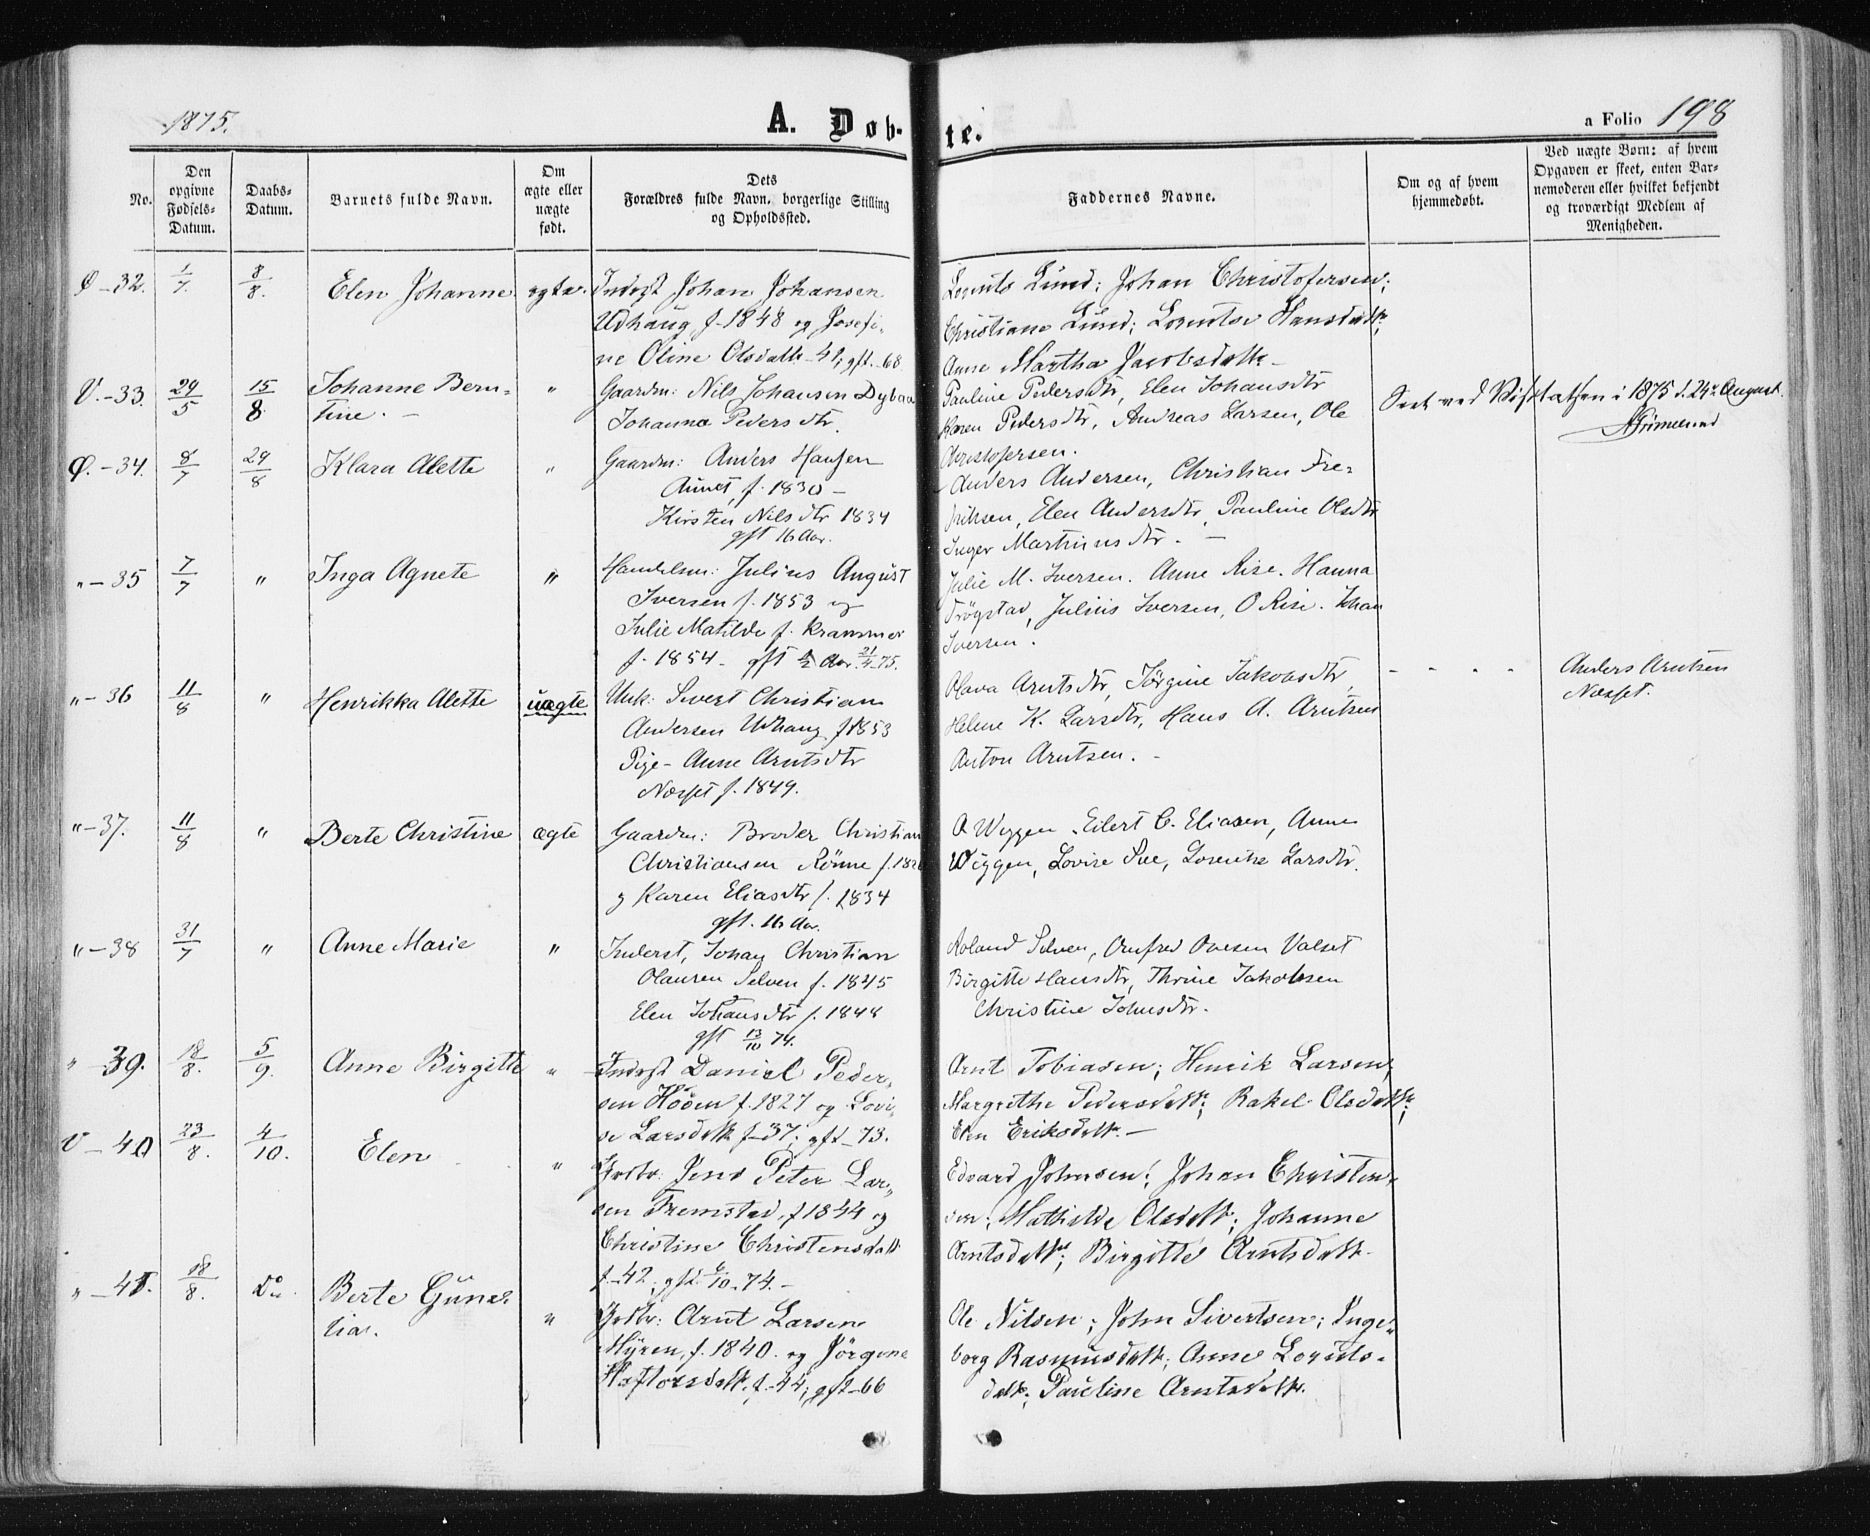 1875.
A. Døb-
te.
a Folio 198
No.
Den
opgivne
Fødsels-
Datum.
Daabs-
Datum.
Barnets fulde Navn.
Om
ægte eller
uægte
født.
Dets
Forældres fulde Navn, borgerlige Stilling
og Opholdssted.
Faddernes Navne.
Om og af hvem
hjemmedøbt.
Ved uægte Børn: af hvem
Opgaven er skeet, enten Bar-
nemoderen eller hvilket bekjendt
og troværdigt Medlem af
Menigheden.
Ø -32. 1/7. 8/8. Elen Johanne ægte. Inderst Johan Johansen
Udhaug f. 1848 og Josefi-
ne Oline Olsdatt. -41, gft. -68
Lorents Lund; Johan Christofersen;
Christiane Lund; Lorentse Hansdatt.;
Anne Martha Jacobsdatt. -
V. -33. 29/5 15/8 Johanne Bern-
tine. - " Gaardm: Nils Johansen Dybaa
Johanna Pedersdtr.
Pauline Pedersdtr, Elen Johansdtr
Karen Pedersdtr, Andreas Larsen, Ole
Christofersen.
Seet ved Visitatsen i 1875 d. 24de August.
AGrimelund
Ø. -34. 8/7 29/8 Klara Alette " Gaardm: Anders Hansen
Aunet, f. 1830 -
Kirsten Nilsdtr 1834
gft 16 Aar.
Anders Andersen, Christian Fre-
driksen, Elen Andersdtr, Pauline Olsdtr
Inger Martinusdtr. -
" -35 7/7 " Inga Agnete " Handelsm: Julius August
Iversen f. 1853 og
Julie Matilde f. Krammer
f. 1854 - gft ½ Aar. 21/4 -75.
Julie M. Iversen. Anne Rise. Hanna
Trøgstad, Julius Iversen, O Rise. Johan
Iversen.
" -36 11/8 " Henrikka Alette uægte Unk: Sivert Christian
Andersen Udhaug f 1853
Pige - Anne Arntsdtr
Næsset f. 1849.
Olava Arntsdtr, Jørgine Jakobsdtr,
Helene K. Larsdtr, Hans A. Arntsen
Anton Arntsen. -
- - - - Anders Arntsen
Næsset.
" -37. 11/8 " Berte Christine ægte Gaardm: Broder Christian
Christiansen Rønne f. 182
og Karen Eliasdtr f. 1834
gft. 16 Aar.
O Wiggen, Eilert C. Eliasen, Anne
Wiggen, Lovise Sue, Lorentse Larsdtr.
" -38 31/7 " Anne Marie " Inderst, Johan Christian
Olausen Selven f. 1845
Elen Johansdtr f. 1848
gft 13/10 74.
Roland Selven, Arnfred Ovesen Valset
Birgitte Hansdtr, Thrine Jakobsen
Christine Johnsdtr.
" -39. 18/8. 5/9. Anne Birgitte " Inderst Daniel Peder-
sen Høøen f. 1827 og Lovi-
se Larsdatt f -37; gft -73.
Arnt Tobiasen; Henrik Larsen;
Margrethe Pedersdatt; Rakel Olsdatt;
Elen Eriksdatt. -
V -40 23/8. 4/10. Elen " Jordbr: Jens Peter Lar-
sen Fremstad, f 1844 og
Christine Christensdatt
f. -42. gft. 6/10 -74. -
Edvard Johnsen; Johan Christen-
sen; Mathilde Olsdatt; Johanne
Arntsdatt; Birgitte Arntsdatt.
" -41. 18/8. Do. Berte Gune-
lia. " Jordbr: Arnt Larsen
Myren, f. 1840. og Jørgine
Haftorsdatt. f. -44; gft -66
Ole Nilsen; John Sivertsen; Inge-
borg Rasmusdatt; Anne Lorents-
datt; Pauline Arntsdatt.